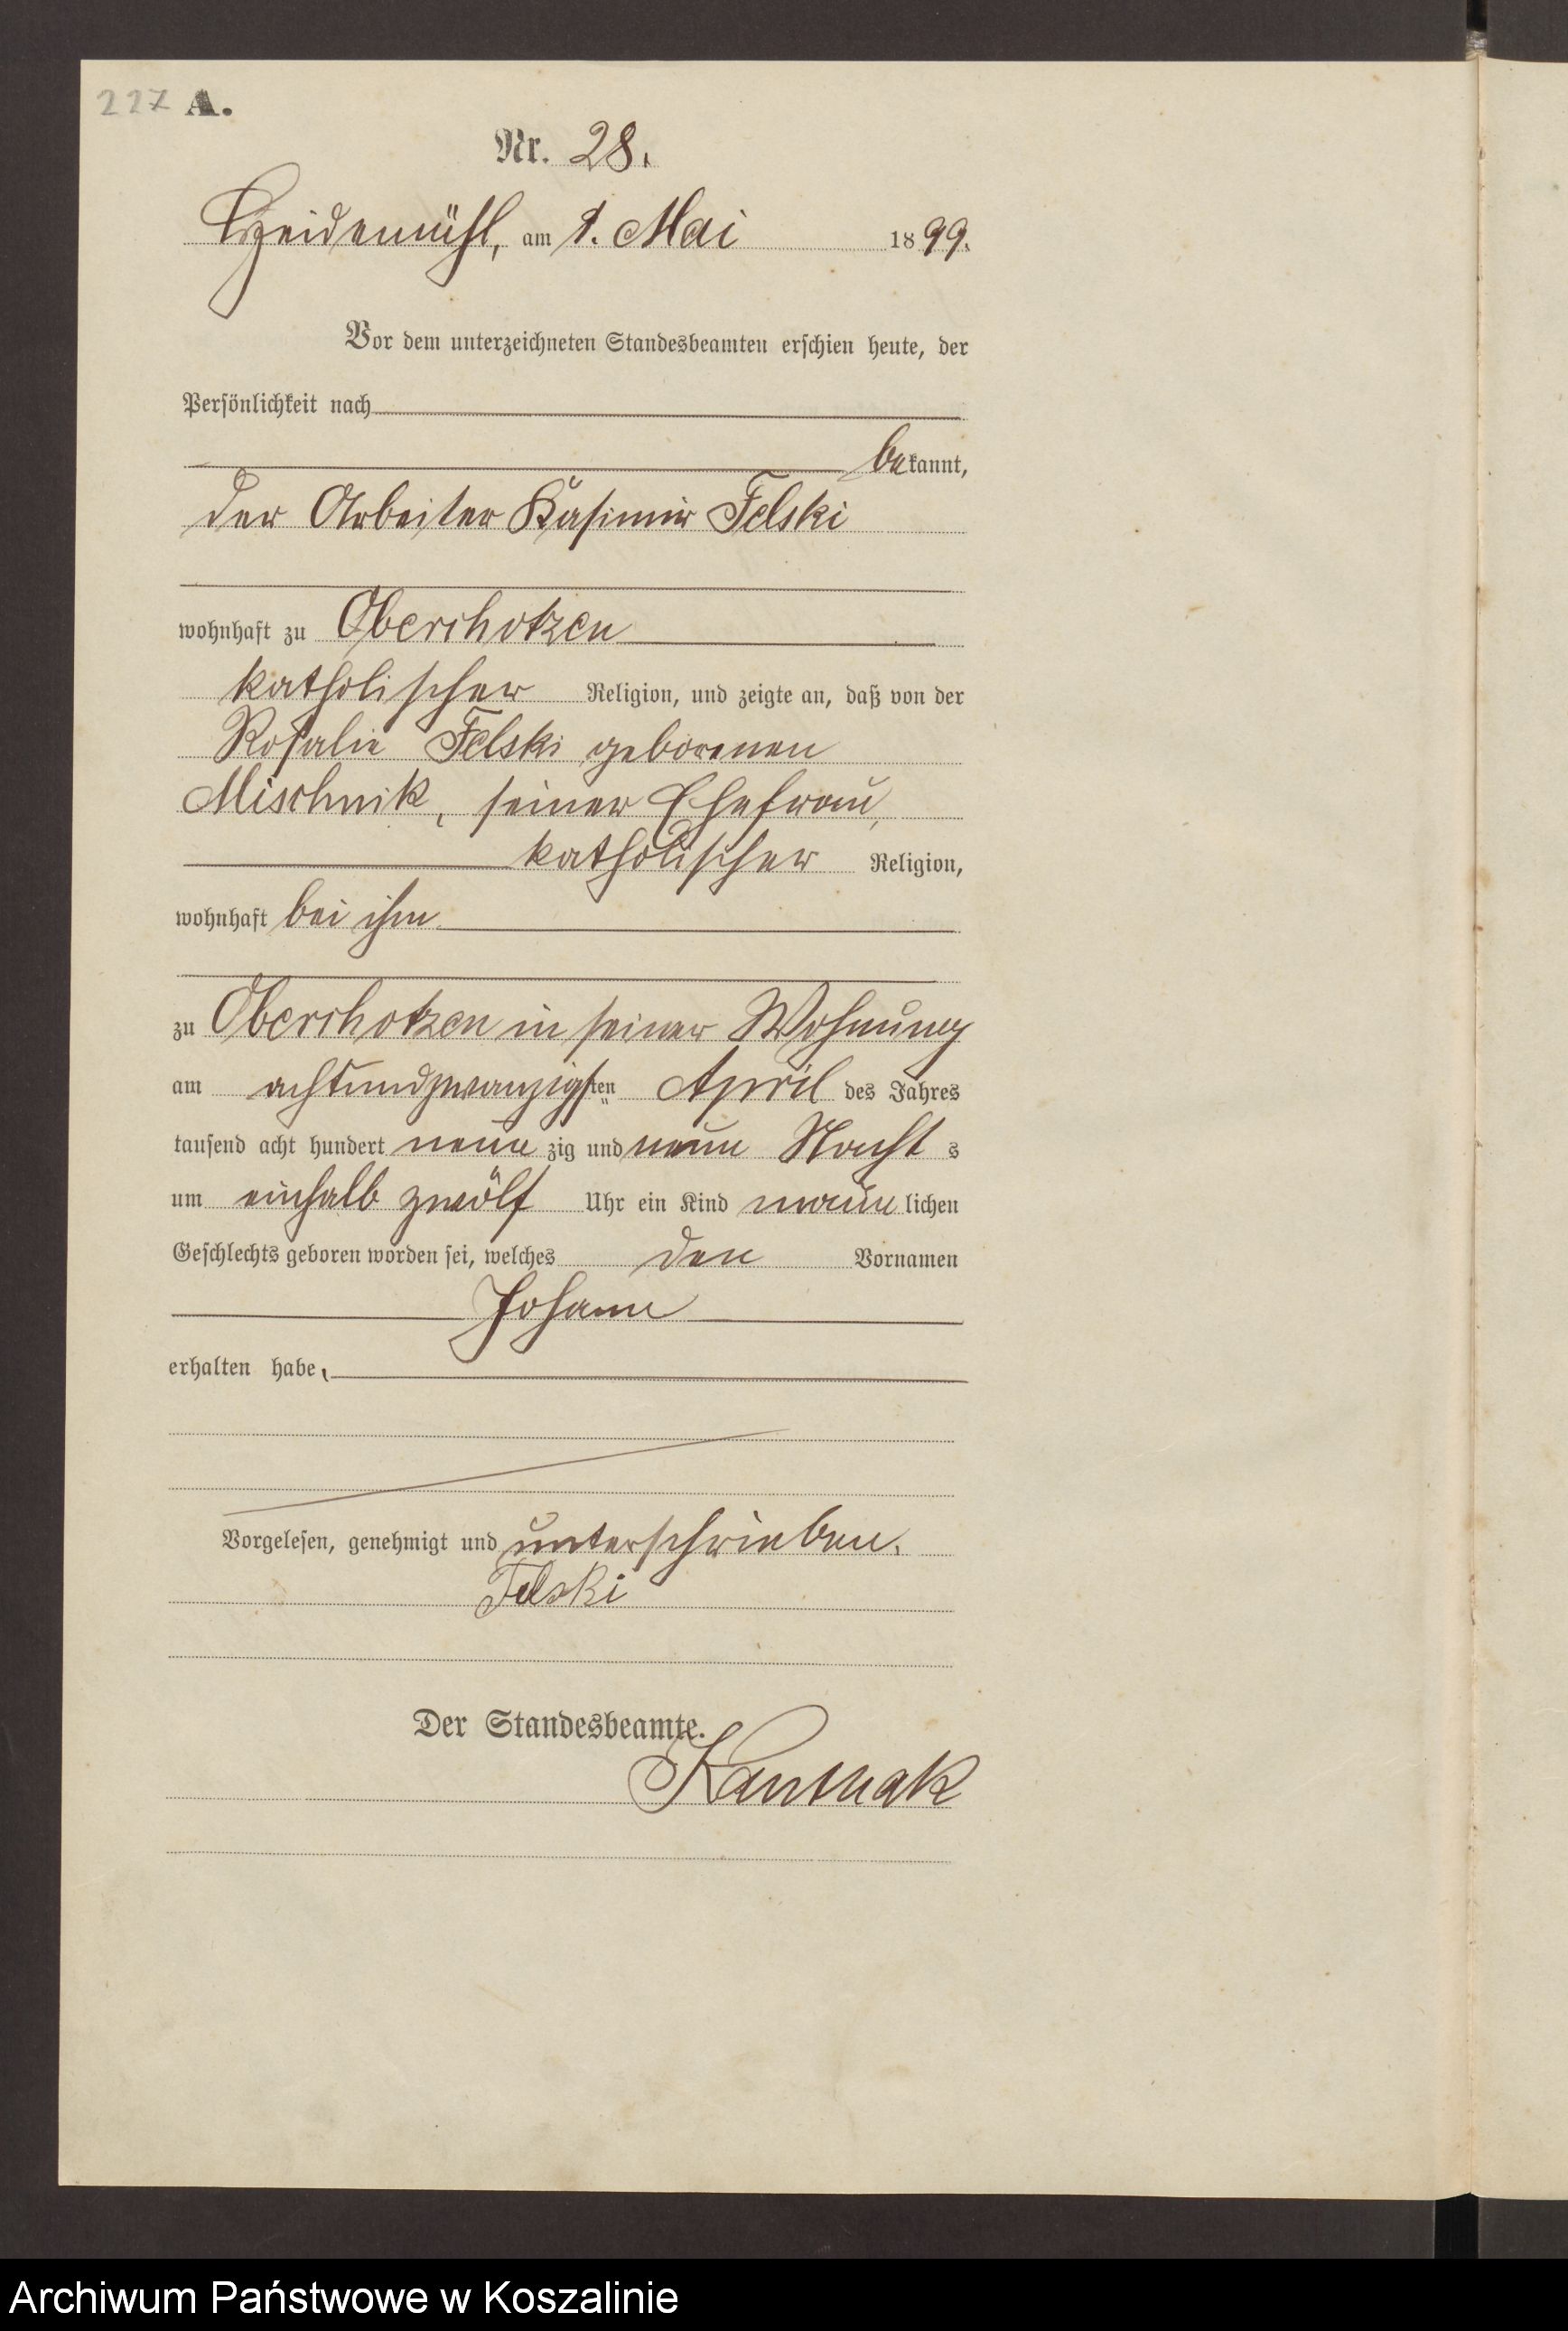 227 A.
Nr. 28.
Heidemühl, am 1. Mai 1899.
Vor dem unterzeichneten Standesbeamten erschien heute, der
Persönlichkeit nach
bekannt,
der Arbeiter Kasimir Felski
wohnhaft zu Oberchotzen
katholischer Religion, und zeigte an, daß von der
Rosalie Felski geborenen
Mischnik, seiner Ehefrau,
katholischer Religion,
wohnhaft bei ihm
zu Oberchotzen in seiner Wohnung
am achtundzwanzigsten April des Jahres
tausend acht hundert neun zig und neun Nacht s
um einhalb zwölf Uhr ein Kind männ lichen
Geschlechts geboren worden sei, welches den Vornamen
Johann
erhalten habe.
Vorgelesen, genehmigt und unterschrieben.
Felski
Der Standesbeamte.
Archiwum Państwowe w Koszalinie